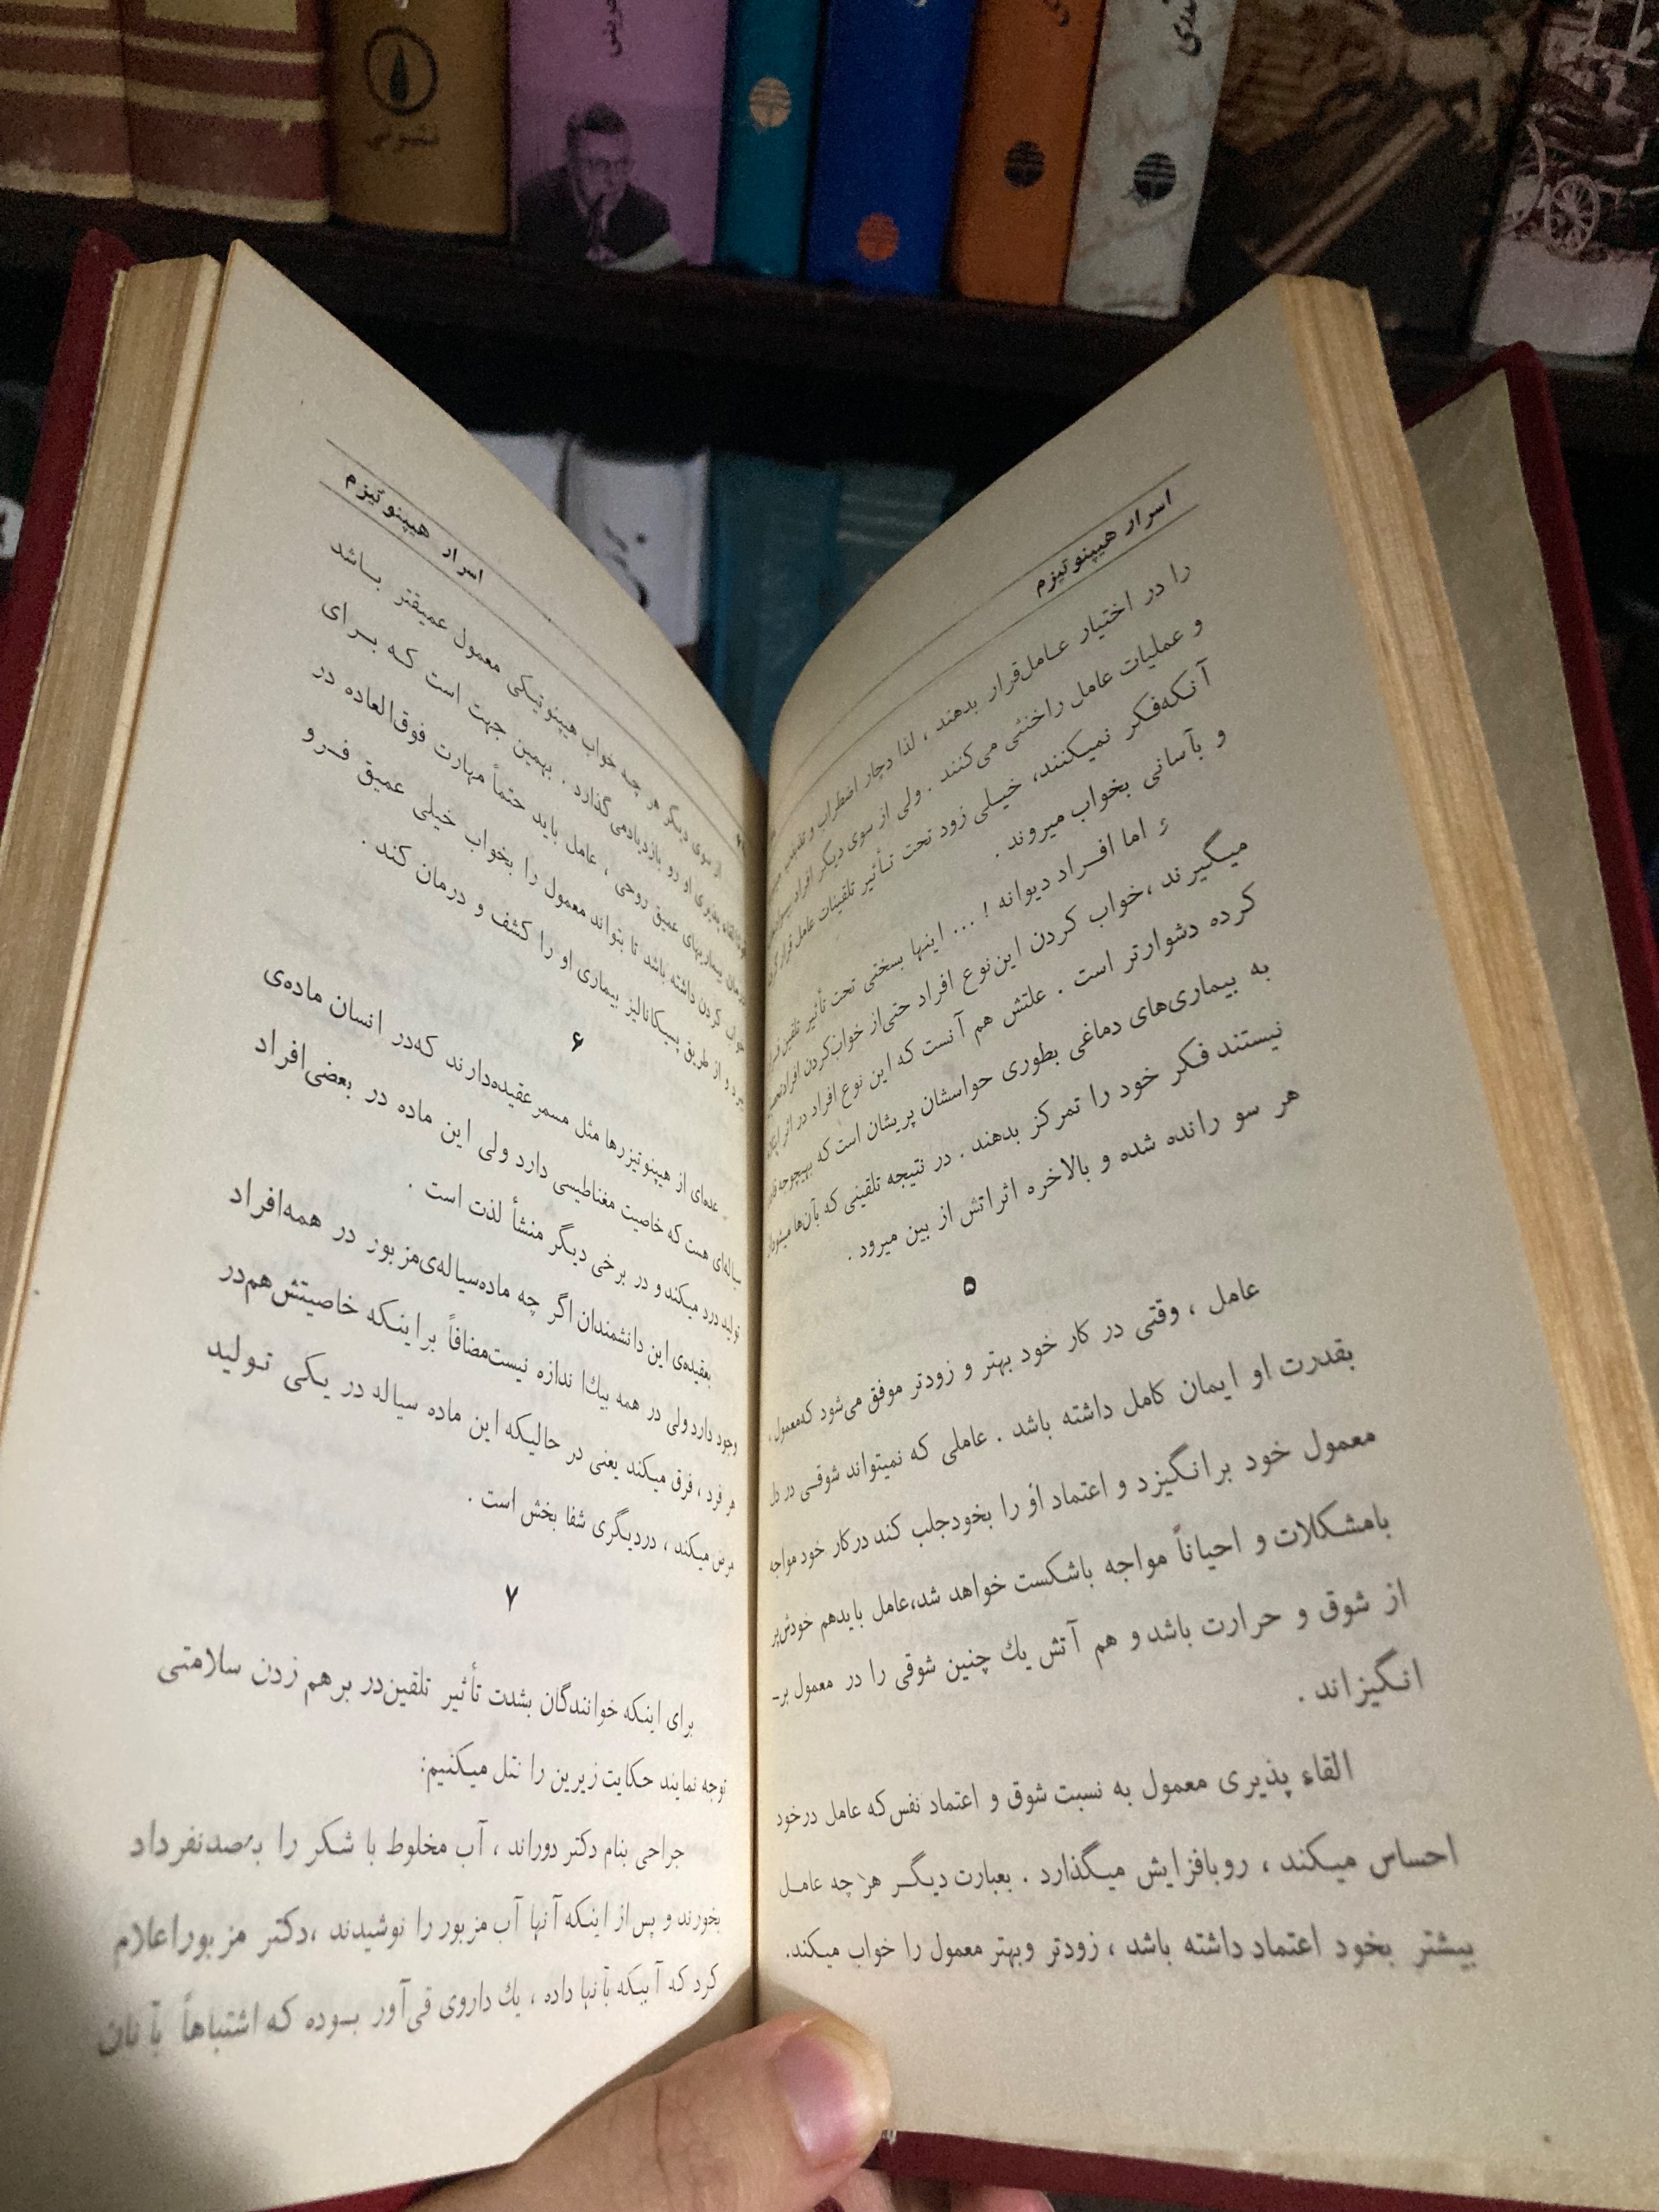 اسرار هیپنوتیزم
را در اختیار عامل‌قرار بدهند ، لذا دچار اضطراب و
و عملیات عامل راخنثی می‌کنند . ولی از سوی دیگر افراد
آنکه‌فکر نمیکنند، خیلی زود تحت تأثیر تلقینات عامل قرار
و بآسانی بخواب میروند .
و اما افراد دیوانه ! ... اینها بسختی تحت تأثیر تلقین
میگیرند ،خواب کردن این‌نوع افراد حتی‌از خواب‌کردن افراد
کرده دشوارتر است . علتش هم آنست که این نوع افراد در اثر
به بیماری‌های دماغی بطوری حواسشان پریشان است که بهیچوجه
نیستند فکر خود را تمرکز بدهند . در نتیجه تلقینی که بآن‌ها
هر سو رانده شده و بالاخره اثراتش از بین میرود .
۵
عامل ، وقتی در کار خود بهتر و زودتر موفق می‌شود که‌معمول ،
بقدرت او ایمان کامل داشته باشد . عاملی که نمیتواند شوقی در دل
معمول خود برانگیزد و اعتماد او را بخودجلب کند درکار خود مواجه
بامشکلات و احیاناً مواجه باشکست خواهد شد،عامل بایدهم خودش‌پر
از شوق و حرارت باشد و هم آتش یك چنین شوقی را در معمول بر-
انگیزاند .
القاء پذیری معمول به نسبت شوق و اعتماد نفس‌که عامل درخود
احساس میکند ، روبافزایش میگذارد . بعبارت دیگر هر چه عامل
بیشتر بخود اعتماد داشته باشد ، زودتر وبهتر معمول را خواب میکند.
اسرار هیپنوتیزم
از سوی دیگر هر چه خواب هیپنوتیکی معمول عمیقتر باشد
پذیری او رو بازدیادمی گذارد . بهمین جهت است که برای
درمان بیماریهای عمیق روحی ، عامل باید حتماً مهارت فوق‌العاده در
خواب کردن داشته باشد تا بتواند معمول را بخواب خیلی عمیق فرو
برد و از طریق پسیکانالیز بیماری او را کشف و درمان کند .
۶
عده‌ای از هیپنوتیزرها مثل مسمر عقیده‌دارند که‌در انسان ماده‌ی
سیاله‌ای هست که خاصیت مغناطیسی دارد ولی این ماده در بعضی‌افراد
تولید درد میکند و در برخی دیگر منشأ لذت است .
بعقیده‌ی این دانشمندان اگر چه ماده‌سیاله‌ی‌مزبور در همه‌افراد
وجود دارد ولی در همه بیك‌اندازه نیست‌مضافاً براینکه خاصیتش‌هم‌در
هر فرد ، فرق میکند یعنی در حالیکه این ماده سیاله در یکی تولید
مرض میکند ، دردیگری شفا بخش است .
۷
برای اینکه خوانندگان بشدت تأثیر تلقین‌در برهم زدن سلامتی
توجه نمایند حکایت زیرین را نقل میکنیم:
جراحی بنام دکتر دوراند ، آب مخلوط با شکر را به‌صدنفرداد
بخورند و پس‌از اینکه آنها آب مزبور را نوشیدند ،دکتر مزبوراعلام
کرد که آبیکه بآنها داده ، یك داروی قی‌آور بوده که اشتباهاً بآنان